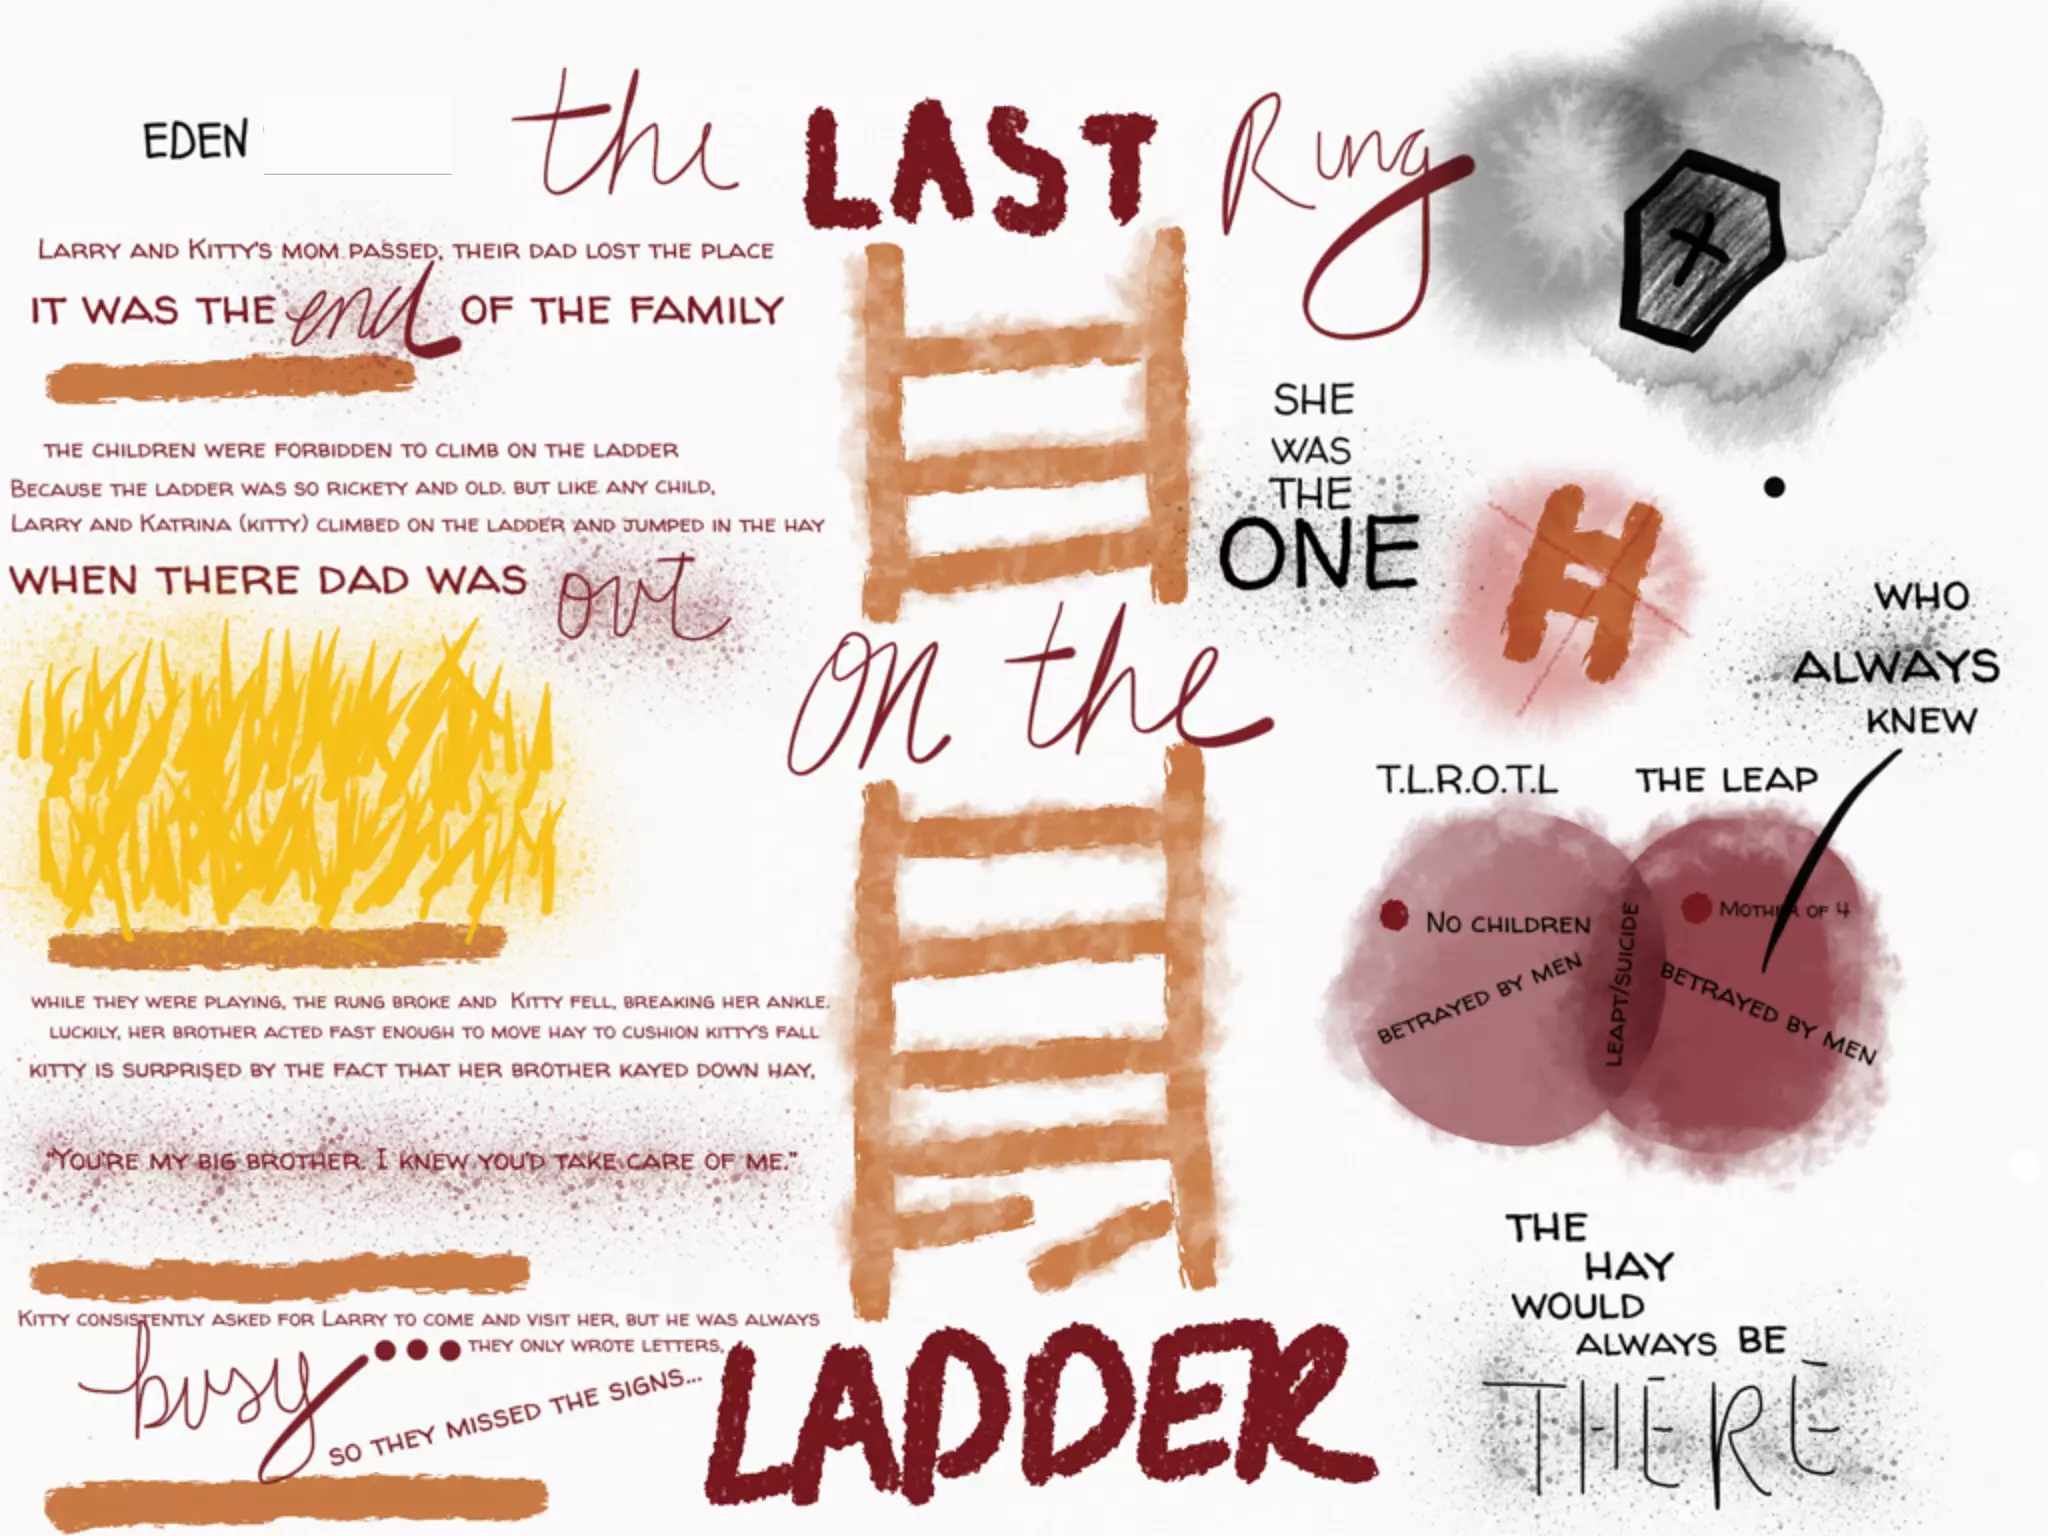 EDEN
the LAST Ring
on the
LADDER
LARRY AND KITTY'S MOM PASSED, THEIR DAD LOST THE PLACE
IT WAS THE end OF THE FAMILY
THE CHILDREN WERE FORBIDDEN TO CLIMB ON THE LADDER
BECAUSE THE LADDER WAS SO RICKETY AND OLD. BUT LIKE ANY CHILD,
LARRY AND KATRINA (KITTY) CLIMBED ON THE LADDER AND JUMPED IN THE HAY
WHEN THERE DAD WAS out
WHILE THEY WERE PLAYING, THE RUNG BROKE AND KITTY FELL, BREAKING HER ANKLE.
LUCKILY, HER BROTHER ACTED FAST ENOUGH TO MOVE HAY TO CUSHION KITTY'S FALL
KITTY IS SURPRISED BY THE FACT THAT HER BROTHER KAYED DOWN HAY,
"YOU'RE MY BIG BROTHER. I KNEW YOU'D TAKE CARE OF ME."
KITTY CONSISTENTLY ASKED FOR LARRY TO COME AND VISIT HER, BUT HE WAS ALWAYS
busy... THEY ONLY WROTE LETTERS,
SO THEY MISSED THE SIGNS...
SHE
WAS
THE
ONE
WHO
ALWAYS
KNEW
T.L.R.O.T.L
THE LEAP
NO CHILDREN
BETRAYED BY MEN
LEAPT/SUICIDE
MOTHER OF 4
BETRAYED BY MEN
THE
HAY
WOULD
ALWAYS BE
THERE